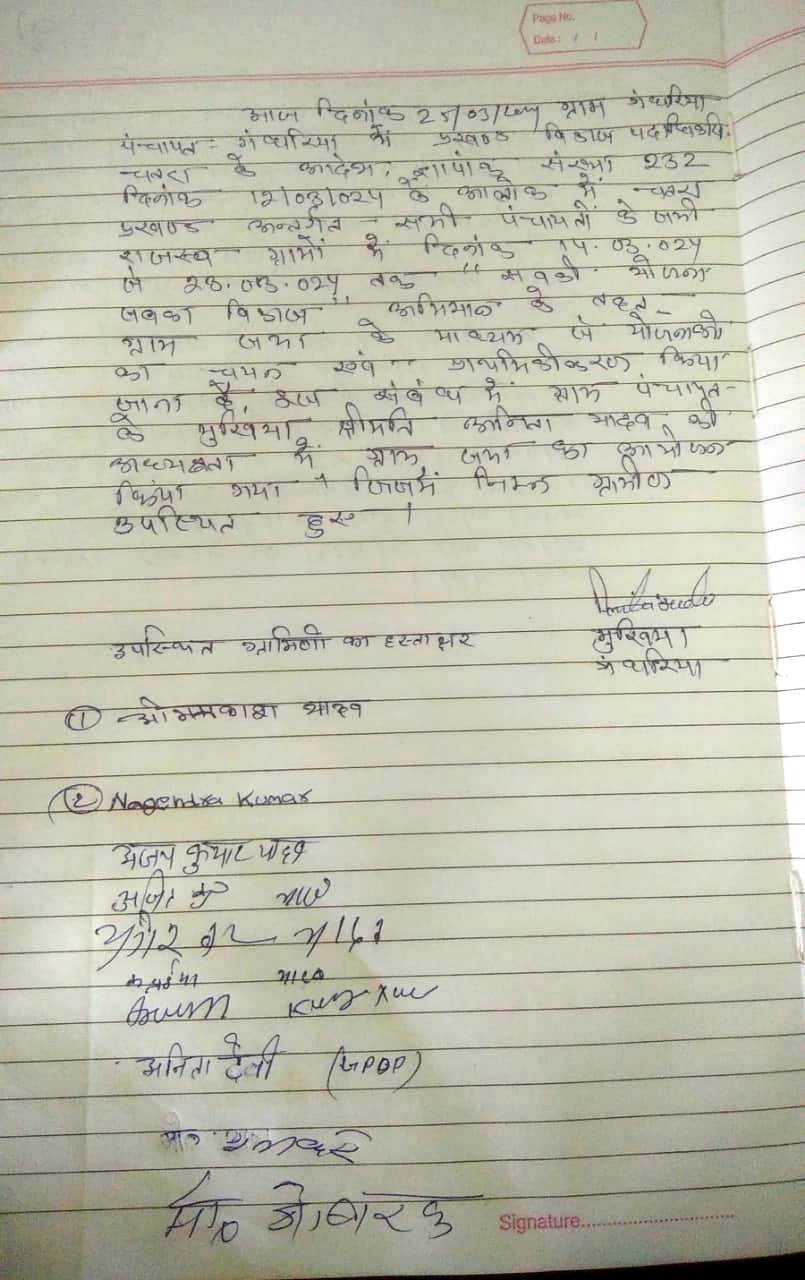 Page No.
Date: / /
आज दिनांक 25/03/2024 ग्राम गंधरिया
पंचायत- गंधरिया में प्रखण्ड विकास पदाधिकारी
चतरा के आदेश, ज्ञापांक संख्या 232
दिनांक 12/03/024 के आलोक में चतरा
प्रखण्ड अन्तर्गत सभी पंचायतों के सभी
राजस्व ग्रामों में दिनांक 14.03.024
से 23.03.024 तक "सबकी योजना
सबका विकास" अभियान के तहत
ग्राम सभा के माध्यम से योजनाओं
का चयन एवं प्राथमिकीकरण किया
जाना है, इस संबंध में ग्राम पंचायत
के मुखिया श्रीमति अनिता यादव की
अध्यक्षता में ग्राम सभा का आयोजन
किया गया । जिसमें निम्न ग्रामीण
उपस्थित हुए ।
उपस्थित ग्रामिणों का हस्ताक्षर
मुखिया
गंधरिया
① ओमप्रकाश यादव
② Nagendra Kumar
अजय कुमार यादव
कन्हैया यादव
अनिता देवी (GPDP)
मो०
Signature